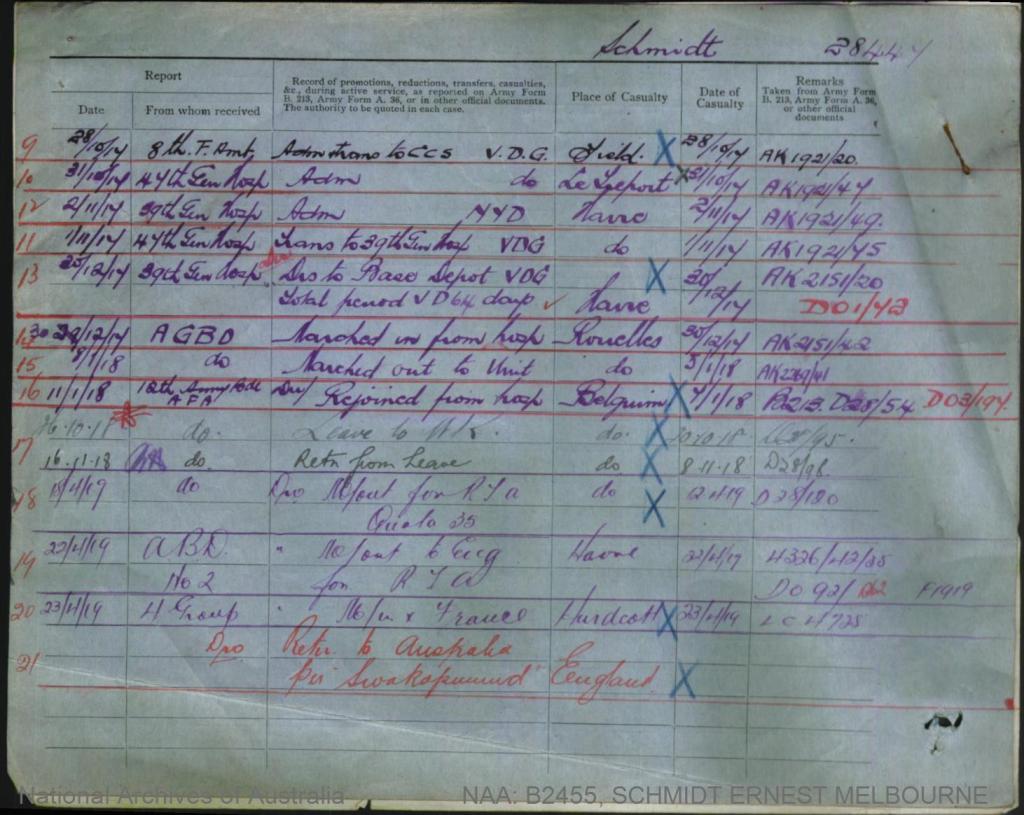 Schmidt 28447
Report
Record of promotions, reductions, transfers, casualties, &c., during active service, as reported on Army Form B. 213, Army Form A. 36, or in other official documents. The authority to be quoted in each case.
Place of Casualty
Date of Casualty
Remarks Taken from Army Form B. 213, Army Form A. 36, or other official documents
Date From whom received
9 28/10/17 8th. F. Amb. Adm & trans to CCS V.D.G. Field. X 28/10/17 AK1921/20.
10 31/10/17 47th Gen Hosp Adm do Le Treport 31/10/17 AK1921/47
12 2/11/17 39th Gen Hosp Adm NYD Havre 2/11/17 AK1921/49.
11 1/11/17 47th Gen Hosp Trans to 39th Gen Hosp VDG do 1/11/17 AK1921/45
13 30/12/17 39th Gen Hosp Dis to Base Depot VDG X 30/12/17 AK2151/20
Total period VD 64 days Havre DO1/43
30/12/17 AGBD Marched in from hosp Rouelles 30/12/17 AK2151/42
15 8/1/18 do Marched out to Unit do 5/1/18 AK2269/41
16 11/1/18 12th Army Bde AFA Dvr Rejoined from hosp Belgium X 7/1/18 B213. D28/54 DO3/194.
17 26.10.18 do. Leave to UK. do. X 20.10.18 /95.
16.11.18 do. Retn from Leave do X 8.11.18 D28/96
18 15/4/19 do Dvr M/out for R T A do X 12 4 19 D28/120
Quota 35
19 22/4/19 A B D. " M/out to Eng Havre 22/4/19 4326/42/35
No 2 for R T A DO 92/ F1919
20 23/4/19 4 Group " M/in x France Hurdcott X 23/4/19 LC 4725
21 Dvr Retn. to Australia
per "Swakopmund" England X
National Archives of Australia
NAA: B2455, SCHMIDT ERNEST MELBOURNE